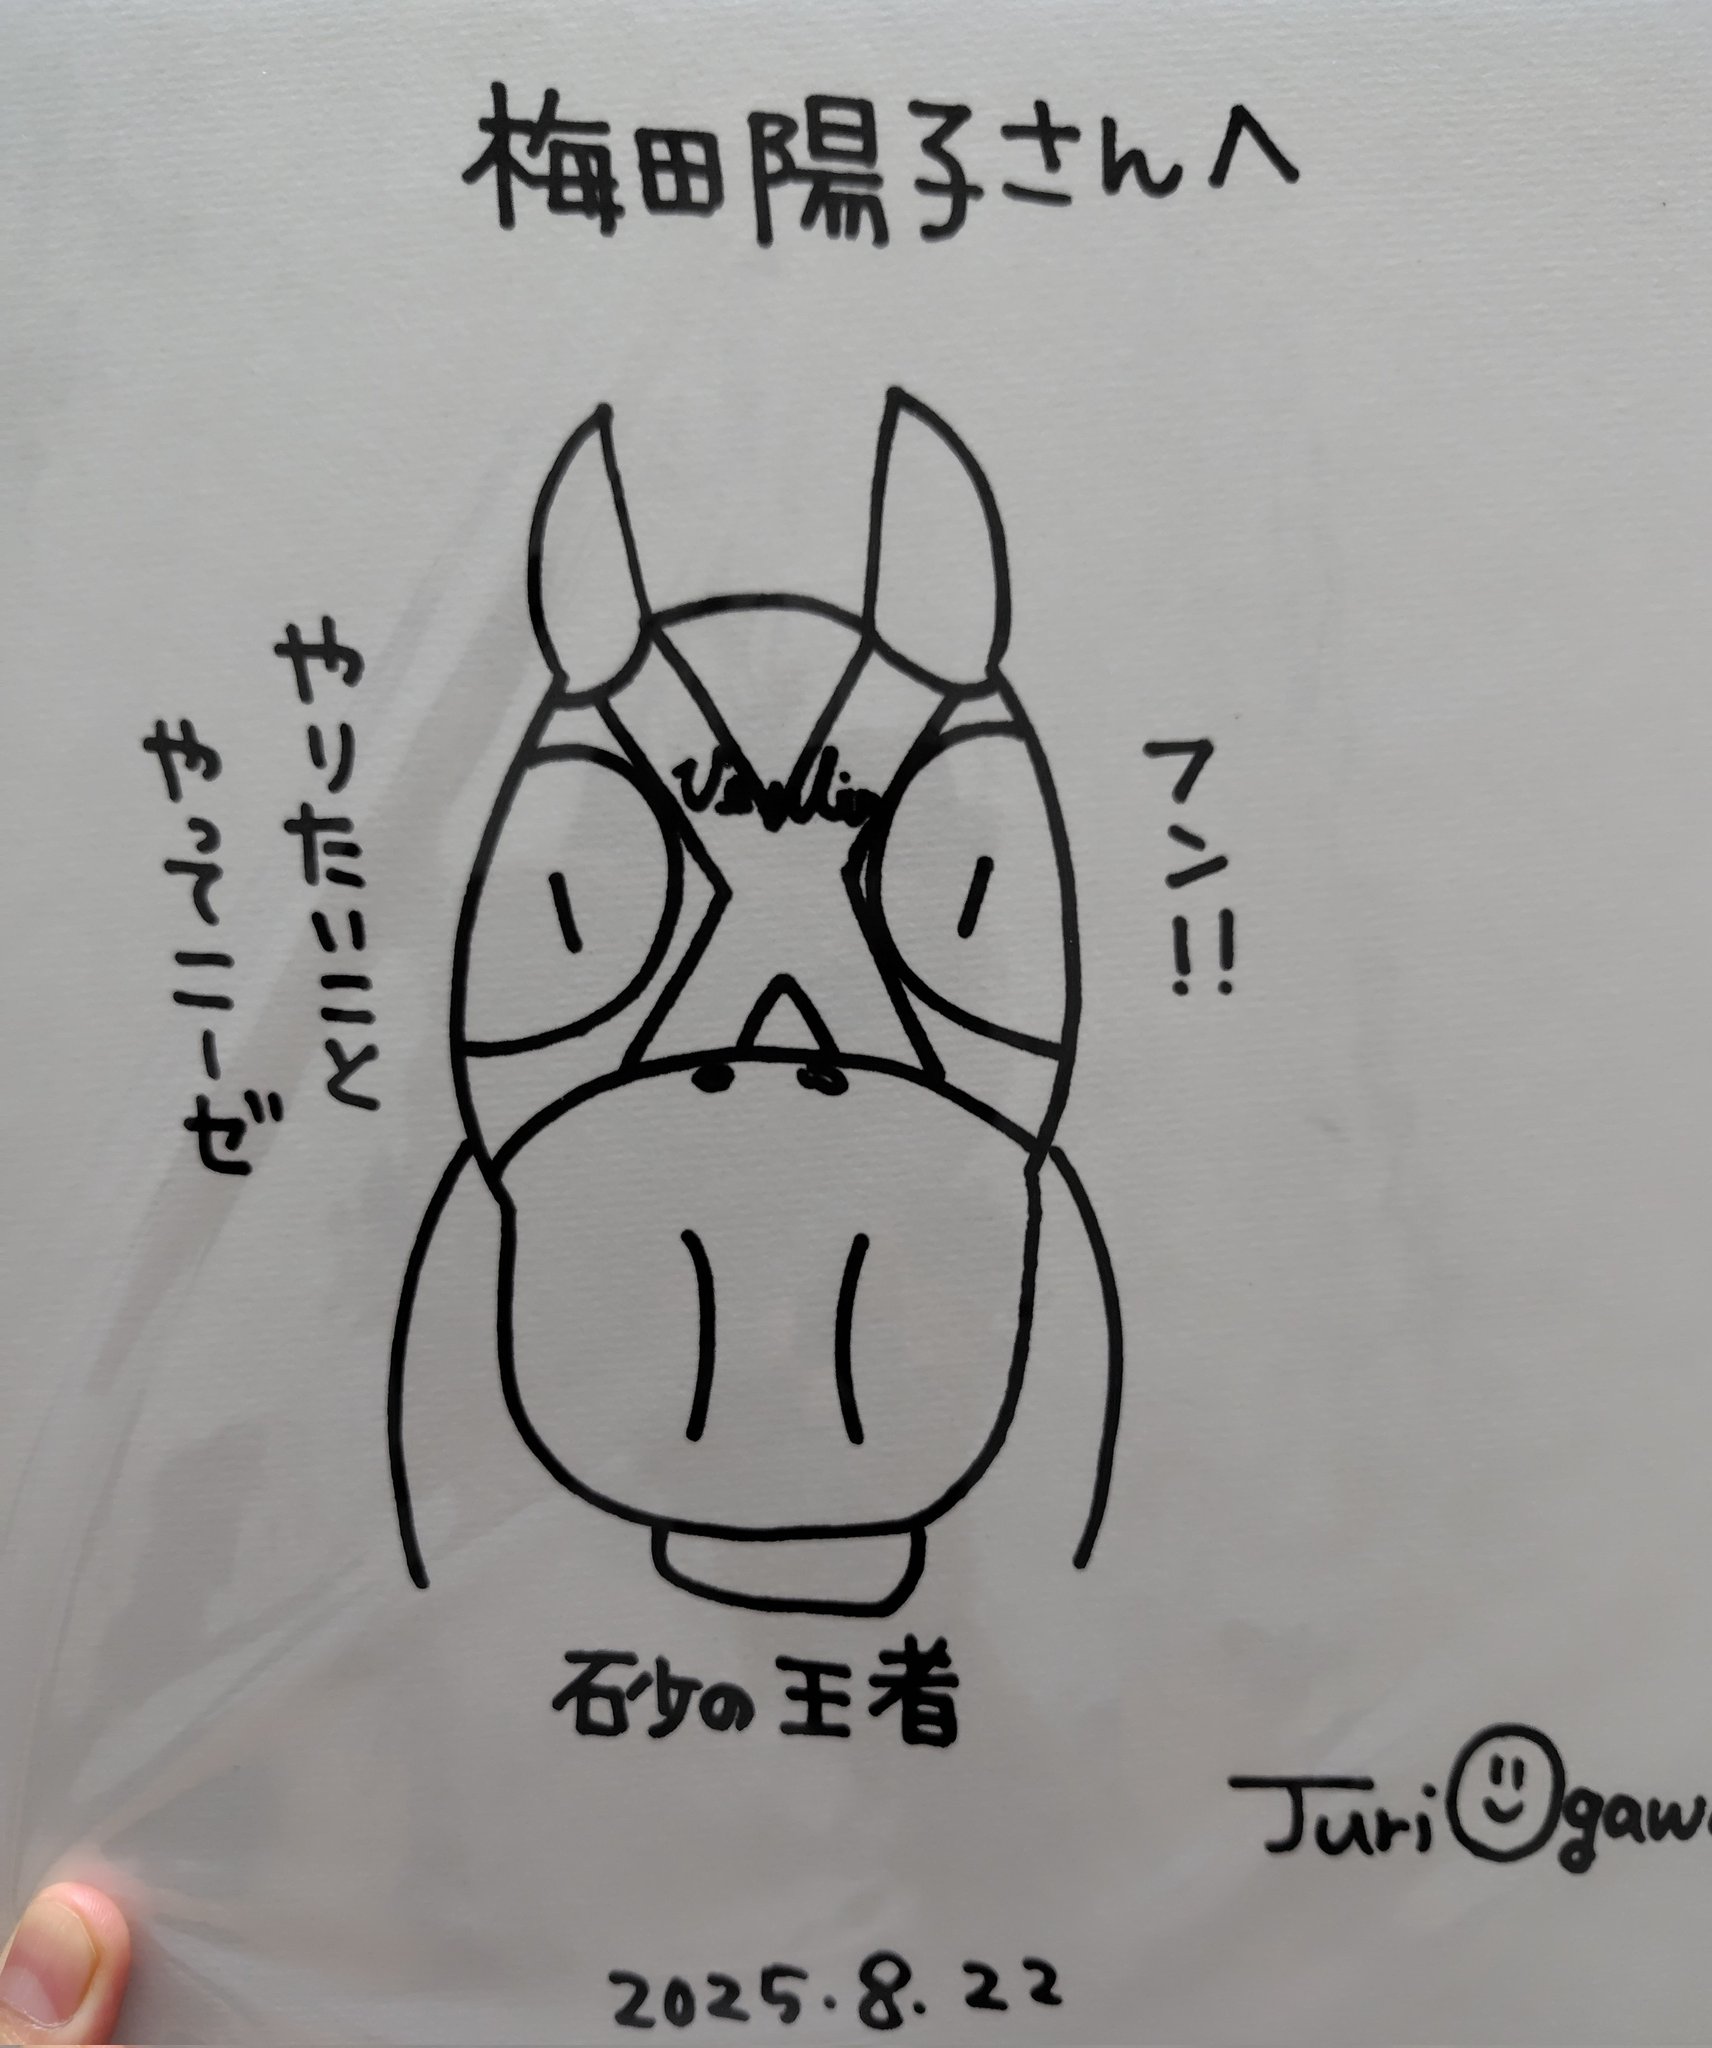 梅田陽子さんへ
フン!!
やりたいこと
やってこーぜ
砂の王者
Juri Ogawa
2025.8.22